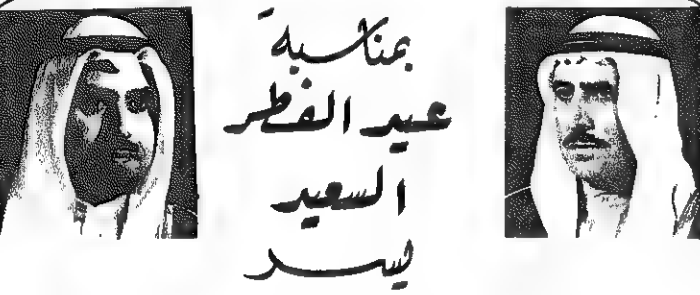 بمناسبة
عيد الفطر
السعيد
يسر